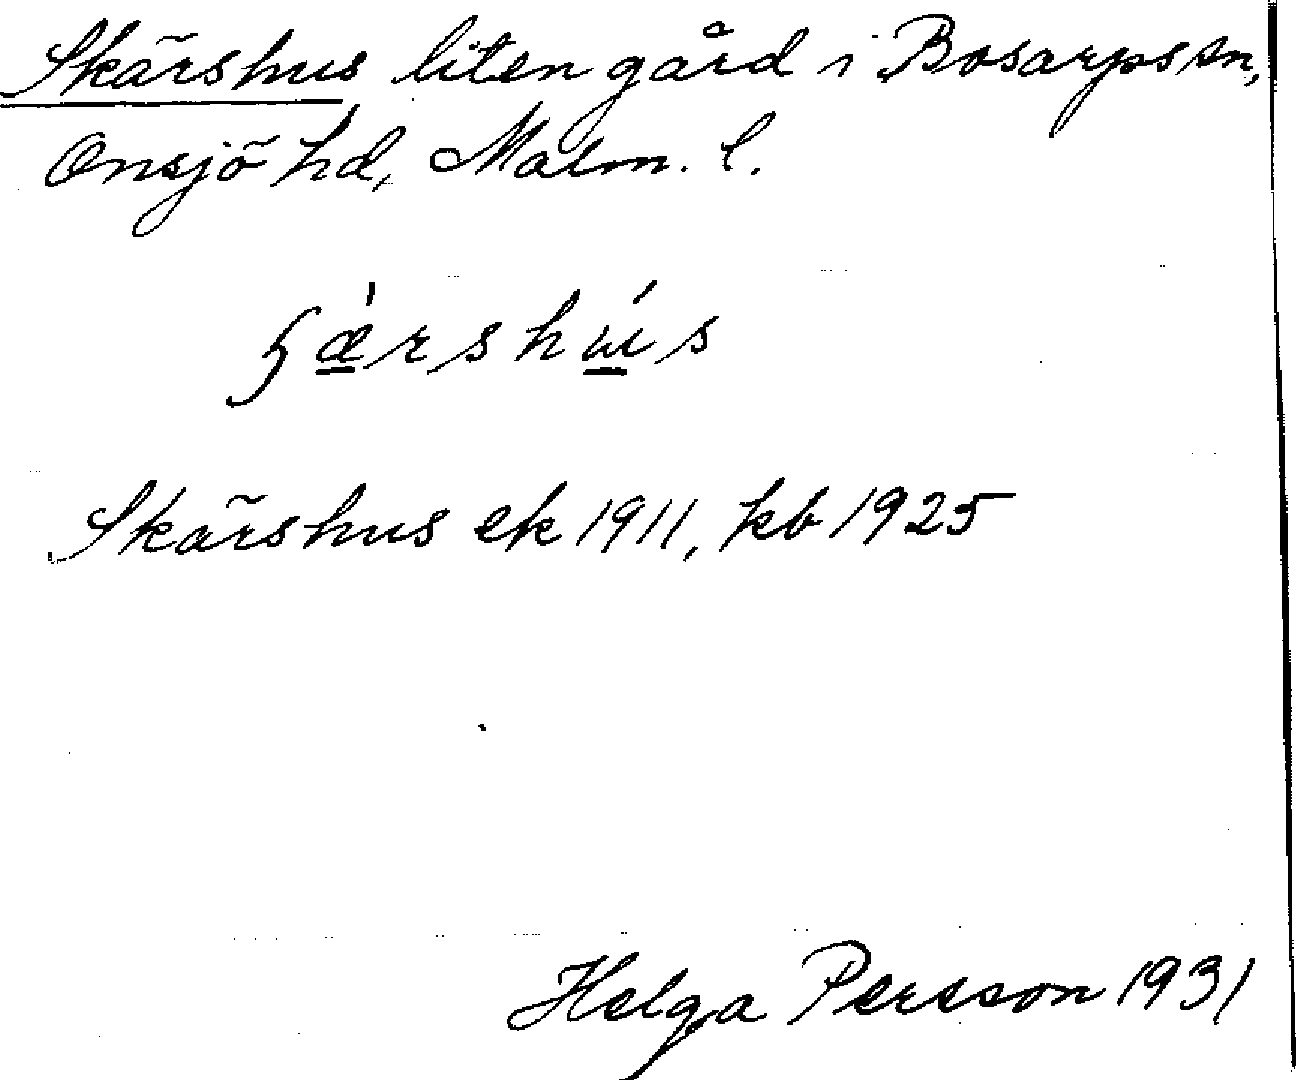 Skärshus liten gård i Bosarps sn,
Onsjö hd, Malm. l.
Skärshus ek 1911, kb 1925
Helga Persson 1931